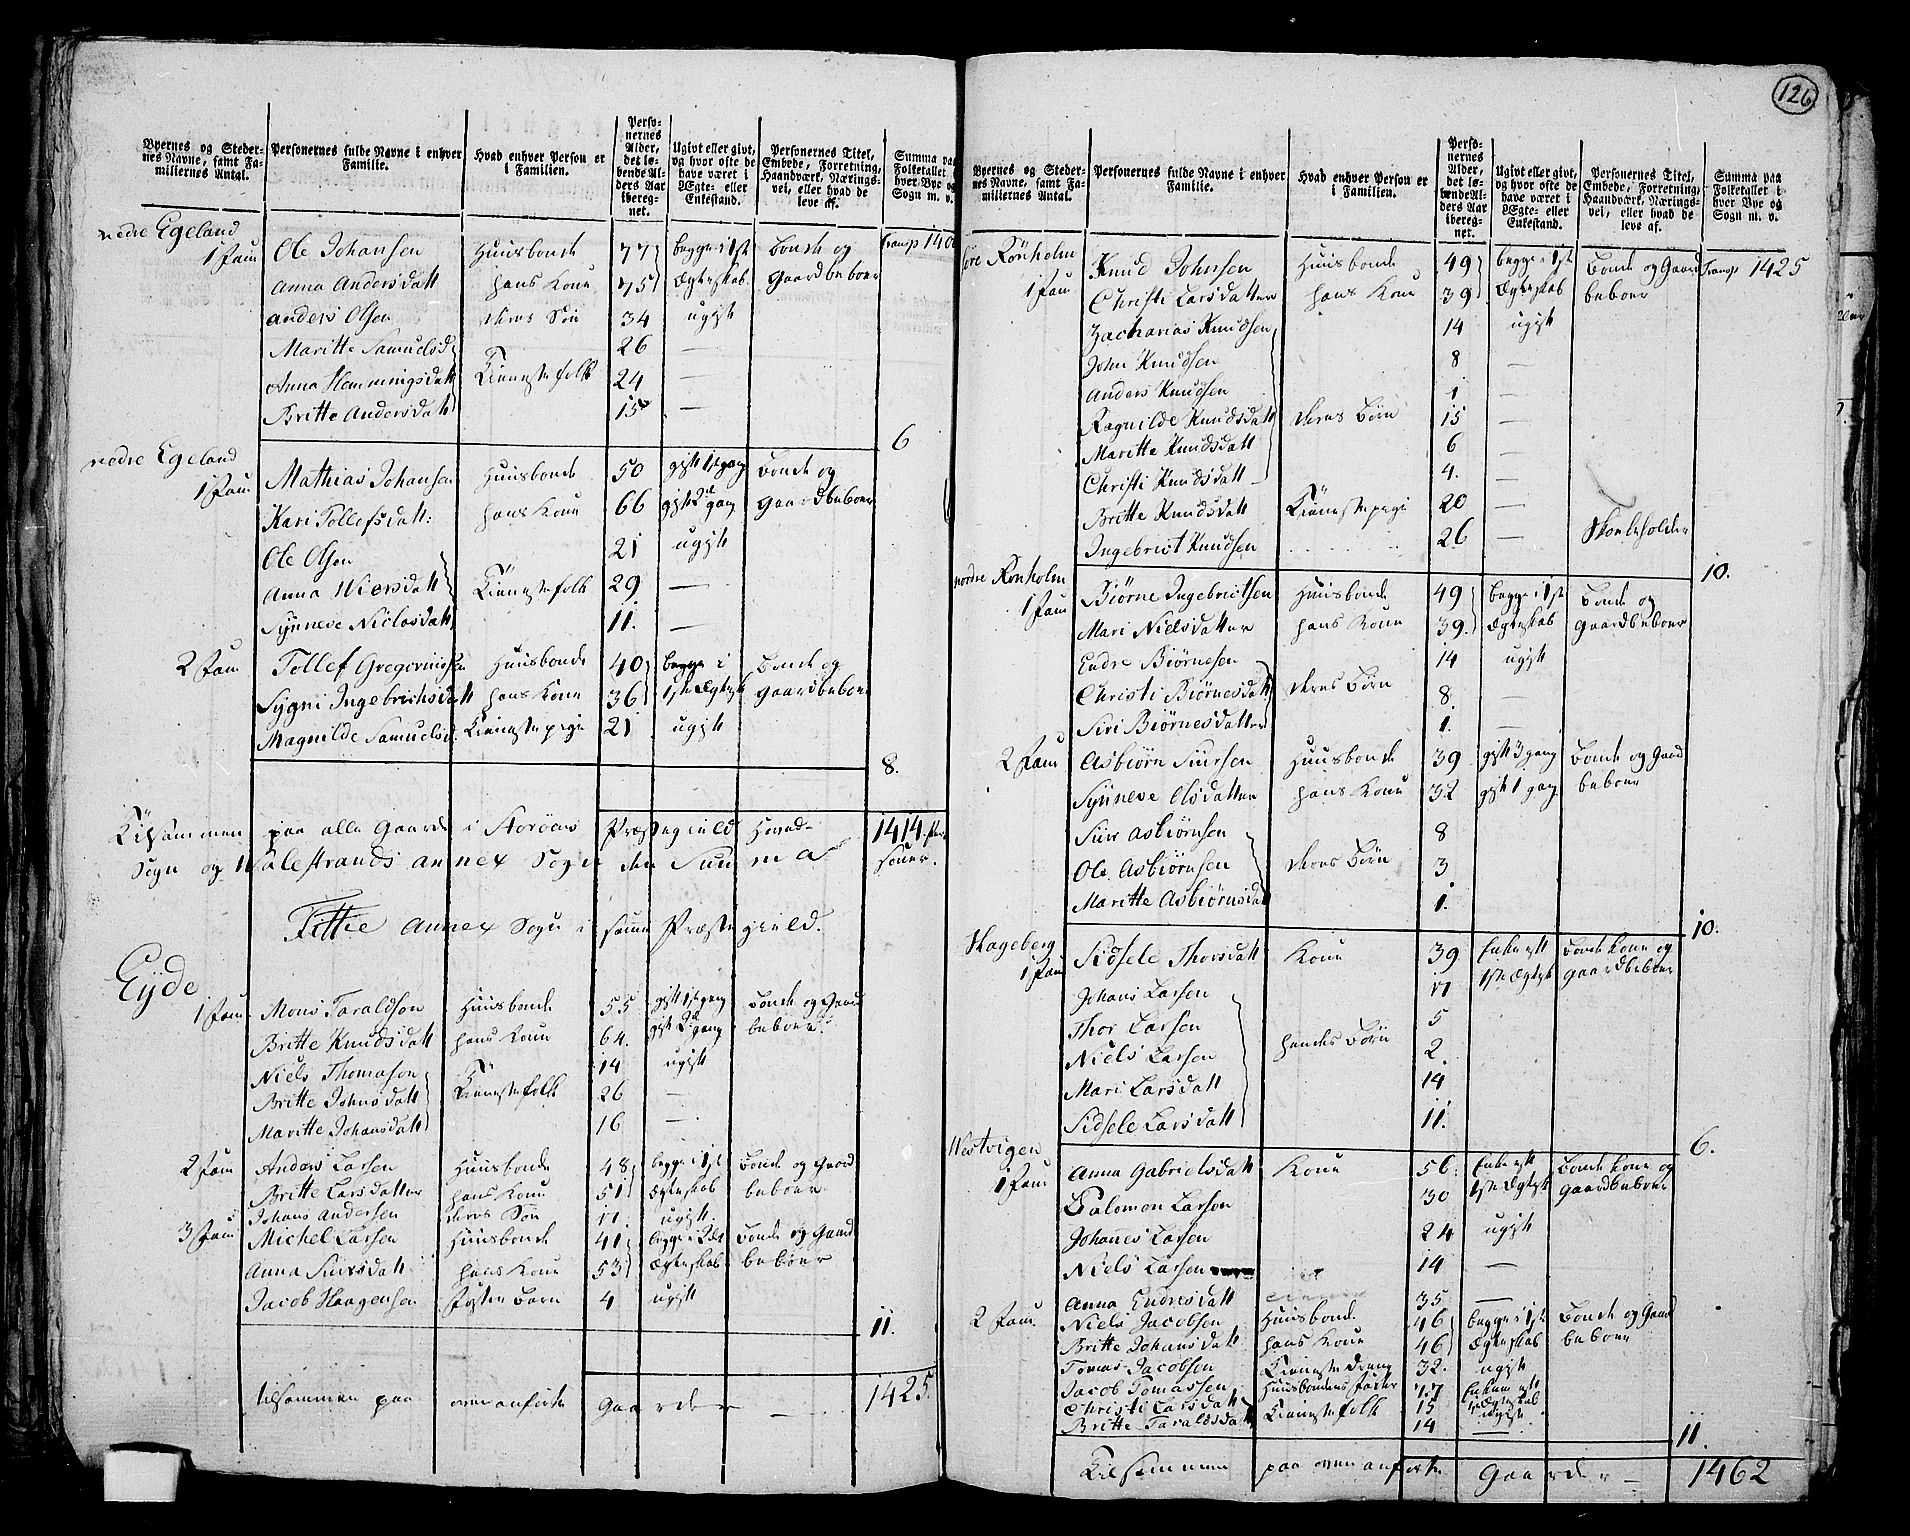 126
Byernes og Steder-
nes Navne, samt Fa-
miliernes Antal.
Personernes fulde Navne i enhver
Familie.
Hvad enhver Person er
i Familien.
Perso-
nernes
Alder,
det lø-
bende Al-
ders Aar
ibereg-
net.
Ugivt eller givt,
og hvor ofte de
have været i
Ægte- eller
Enkestand.
Personernes Titel,
Embede, Forretning,
Haandværk, Nærings-
vei, eller hvad de
leve af.
Summa paa
Folketallet i
hver Bye og
Sogn m. v.
nedre Egeland
1 Fam Ole Johansen Huusbonde 77 begge i 1ste Bonde og Transp 1400
Anna Andersdatt hans Kone 75 Ægteskab Gaardbeboer
Anders Olsen deres Søn 34 ugift
Maritte Samuelsd 26 —
Anna Hemmingsdatt Tienestefolk 24 —
Britte Andersdatt 15 —
6
nedre Egeland
1 Fam Mathias Johansen Huusbonde 50 gift 1ste gang Bonde og
Kari Tollefsdatt: hans Kone 66 gift 2d gang Gaardbeboer
Ole Olsen 21 ugift
Anna Niersdatt Tienestefolk 29 —
Synneve Niclasdatt 11. —
2 Fam Tollef Gregoriusen Huusbonde 40 begge i Bonde og
Sygni Ingebrichtsdatt hans Kone 36 1ste Ægtesk Gaardbeboer
Magnilde Samuelsd. Tienestepige 21 ugift
8.
Tilsammen paa alle Gaarde i Præstegield Hoved- 1414 per-
Sogn og annex Sogn den Summa soner.
Tittie annex Sogn i samme Præstegield.
Eyde
1 Fam Mons Taraldson Huusbonde 55 gift 1ste gang Bonde og Gaard
Britte Knudsdatt hans Kone 64. gift 2d gang beboer.
Niels Thomason 14 ugift
Britte Johnsdatt Tienestefolk 26 —
Maritte Johansdatt 16 —
2 Fam Anders Larsen Huusbonde 48 begge i 1ste Bonde og Gaard
Britte Larsdatter hans Kone 51 Ægteskab beboer
Johans Andersen deres Søn 11. ugift.
3 Fam Michel Larsen Huusbonde 41 begge i 2det Bonde og Gaard
Anna Siursdatt hans Kone 53 Ægteskab beboer
Jacob Haagensen Foster Barn 4 ugift
11.
tilsammen paa ovenanførte Gaarder — 1425.
Byernes og Steder-
nes Navne, samt Fa-
miliernes Antal.
Personernes fulde Navne i enhver
Familie.
Hvad enhver Person er
i Familien.
Perso-
nernes
Alder,
det lø-
bende Al-
ders Aar
ibereg-
net.
Ugivt eller givt,
og hvor ofte de
have været i
Ægte- eller
Enkestand.
Personernes Titel,
Embede, Forretning,
Haandværk, Nærings-
vei, eller hvad de
leve af.
Summa paa
Folketallet i
hver Bye og
Sogn m. v.
søre Rönholm Knud Johnsen Huusbonde 49 begge i 1ste Bonde og Gaard Transp 1425
1 Fam Christi Larsdatter hans Kone 39 Ægteskab beboer
Zacharias Knudsen 14 ugift
John Knudsen 8 —
Anders Knudsen 1 —
Ragnilde Knudsdatt deres Börn 15 —
Maritte Knudsdatt 6 —
Christi Knudsdatt 4. —
Britte Knudsdatt Tienestepige 20 —
Ingebrist Knudsen 26 — Skoleholder
10.
nordre Ronholm
1 Fam Biørne Ingebrictsen Huusbonde 49 begge i 1ste Bonde og
Mari Nielsdatter hans Kone 39. Ægteskab Gaardbeboer
Endre Biørnesen 14 ugift
Christi Biørnesdatt deres Börn 8. —
Siri Biørnesdatter 1. —
2 Fam Asbiørn Siursen Huusbonde 39 gift 3 gang Bonde og Gaard
Synneve Olsdatter hans Kone 32 gift 1 gang beboer
Siur Asbiørnsen 8
Ole Asbiørnsen deres Börn 3
Maritte Asbiørnsdatt 1.
10.
Hageberg
1 Fam Sidsele Thorsdatt Kone 39 Enke eft Bonde Kone og
Johans Larsen 11 1ste Ægtesk Gaardbeboer
Thor Larsen 5
Niels Larsen hendes Börn 2.
Mari Larsdatt 14
Sidsele Larsdatt 11.
6.
Westvigen
1 Fam Anna Gabrielsdatt Kone 56. Enke eft Bonde Kone og
Salomon Larson 30 1ste Ægtesk Gaardbeboer
Johannes Larsen 24 ugift
Niels Larsen 14 —
Anna Endresdatt 35 —
2 Fam. Niels Jacobsen Huusbonde 46 begge i 1ste Bonde og Gaard
Britte Johansdatt hans Kone 46 Ægteskab beboer
Tomas Jacobsen Tieneste Dreng 32. ugift
Jacob Tomassen Huusbondens Fader 77 Enkem eft
Christi Larsdatt Tienestefolk 15 1 Ægteskab
Britte Taraldsdatt 14 ugift
11.
Tilsammen paa ovenanførte Gaarder — 1462